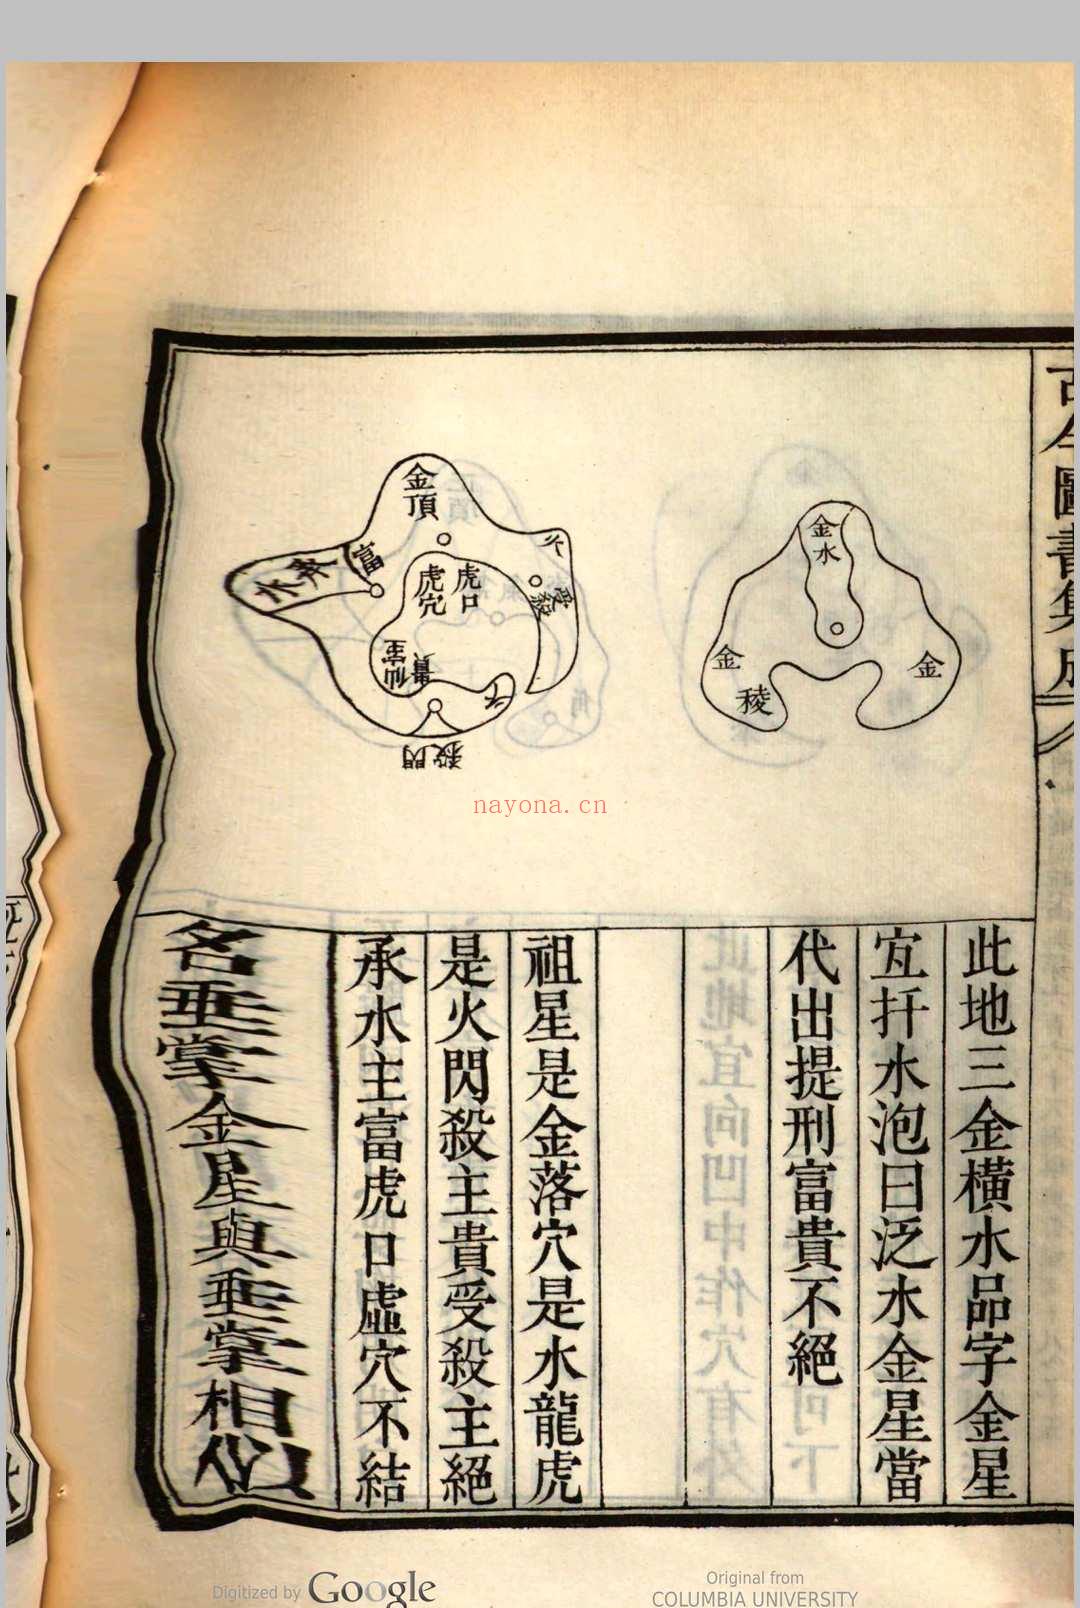 古今圖書集成
金水
金
金
稜
金頂
富
承水
虎口
虎穴
火
受殺
貴
仙宮
水
閃殺
nayona.cn
此地三金橫水品字金星
宐扞水泡曰泛水金星當
代出提刑富貴不絕
祖星是金落穴是水龍虎
是火閃殺主貴受殺主絕
承水主富虎口虛穴不結
名垂掌金星與垂掌相似
Digitized by Google
Original from
COLUMBIA UNIVERSITY